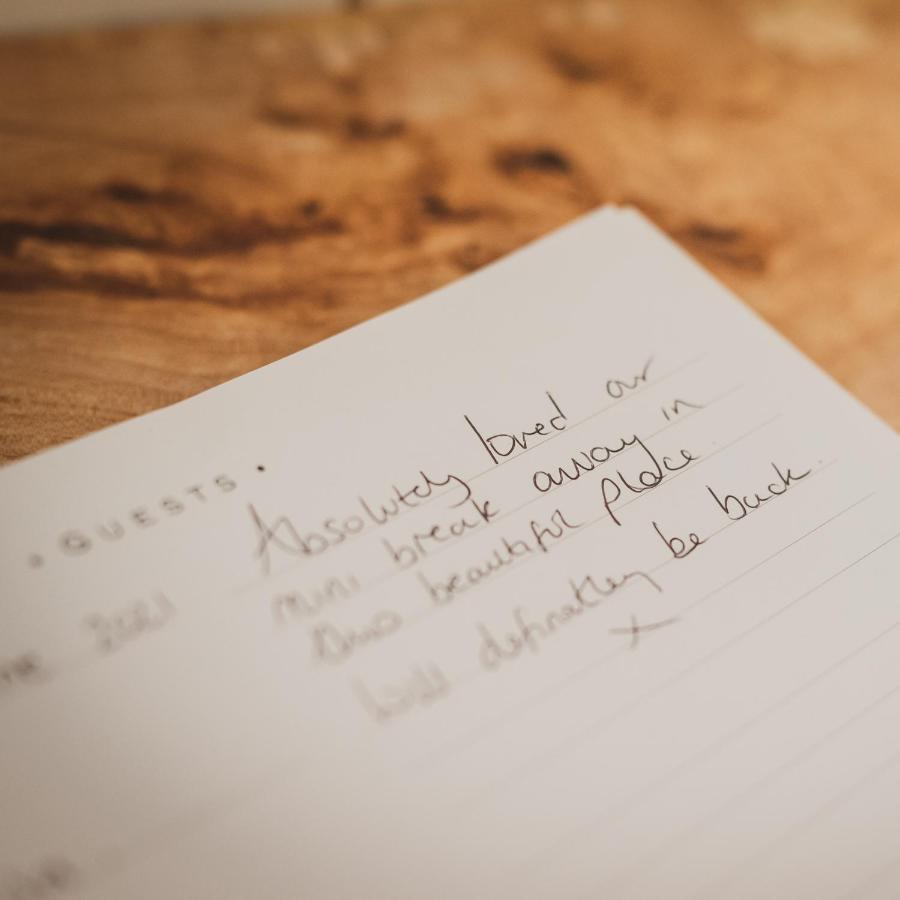 • GUESTS •
2021
Absolutely loved our
mini break away in
beautiful place.
Will definatley be back.
x